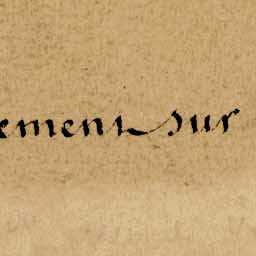 ement sur